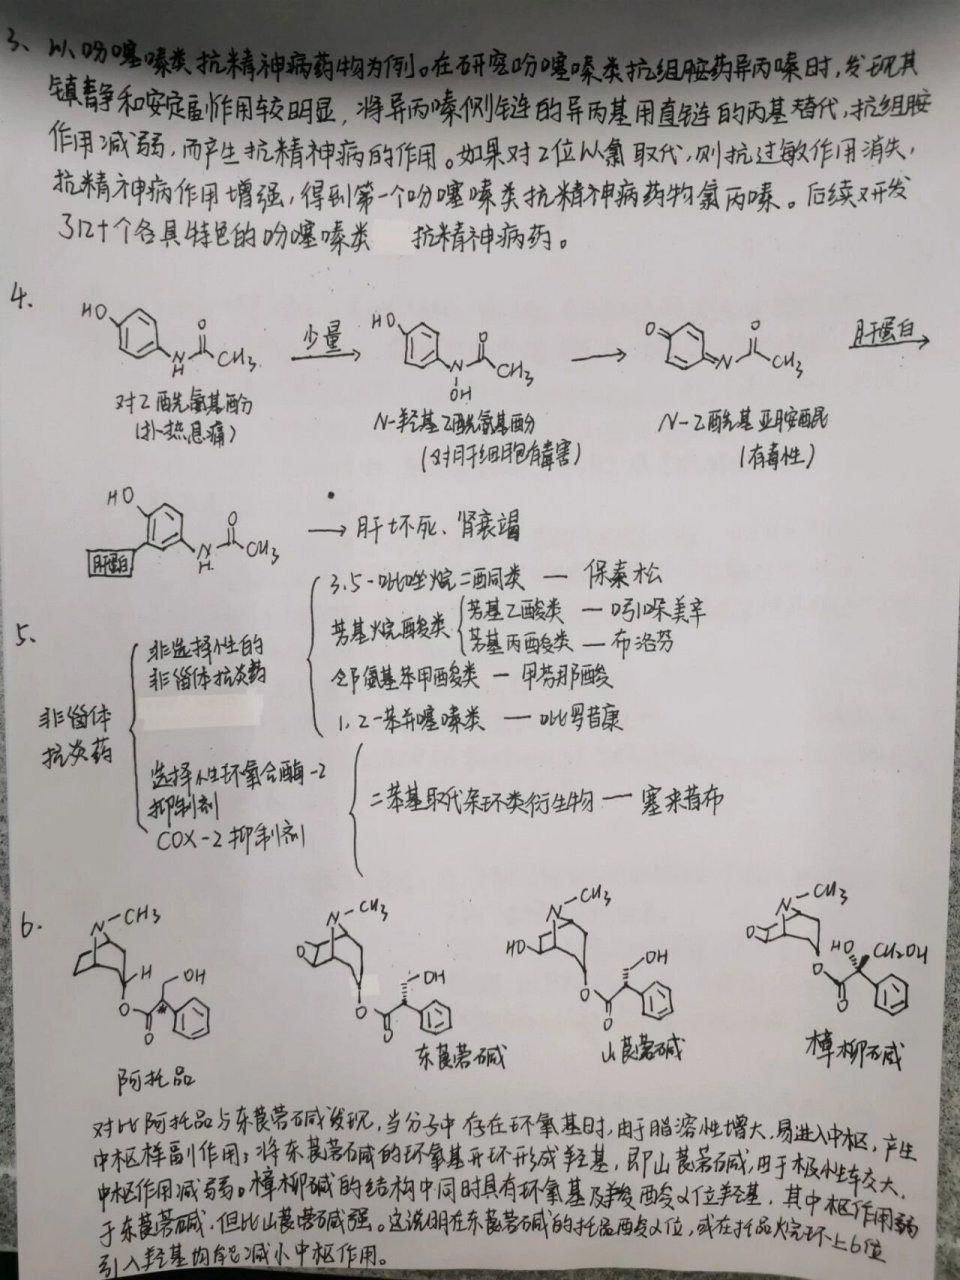 3、以吩噻嗪类抗精神病药物为例。在研究吩噻嗪类抗组胺药异丙嗪时,发现其
镇静和安定副作用较明显,将异丙嗪侧链的异丙基用直链的丙基替代,抗组胺
作用减弱,而产生抗精神病的作用。如果对2位以氯取代,则抗过敏作用消失,
抗精神病作用增强,得到第一个吩噻嗪类抗精神病药物氯丙嗪。后续又开发
了几十个各具特色的吩噻嗪类 抗精神病药。
4.
HO N H O CH3
少量
HO N OH O CH3
O N O CH3
肝蛋白
对乙酰氨基酚
(扑热息痛)
N-羟基乙酰氨基酚
(对肝细胞有毒害)
N-乙酰基亚胺醌
(有毒性)
HO 肝蛋白 N H O CH3
肝坏死、肾衰竭
5.
非甾体
抗炎药
非选择性的
非甾体抗炎药
3,5-吡唑烷二酮类 — 保泰松
芳基烷酸类
芳基乙酸类 — 吲哚美辛
芳基丙酸类 — 布洛芬
邻氨基苯甲酸类 — 甲芬那酸
1,2-苯并噻嗪类 — 吡罗昔康
选择性环氧合酶-2
抑制剂
COX-2抑制剂
二苯基取代杂环类衍生物 — 塞来昔布
6.
N-CH3 H OH O O *
N-CH3 O OH O O
N-CH3 HO OH O O
N-CH3 O HO CH2OH O O
阿托品
东莨菪碱
山莨菪碱
樟柳碱
对比阿托品与东莨菪碱发现,当分子中存在环氧基时,由于脂溶性增大,易进入中枢,产生
中枢样副作用;将东莨菪碱的环氧基开环形成羟基,即山莨菪碱,由于极性较大,
中枢作用减弱。樟柳碱的结构中同时具有环氧基及羧酸α位羟基,其中枢作用弱
于东莨菪碱,但比山莨菪碱强。这说明在东莨菪碱的托品酸α位,或在托品烷环上6位
引入羟基均能减小中枢作用。